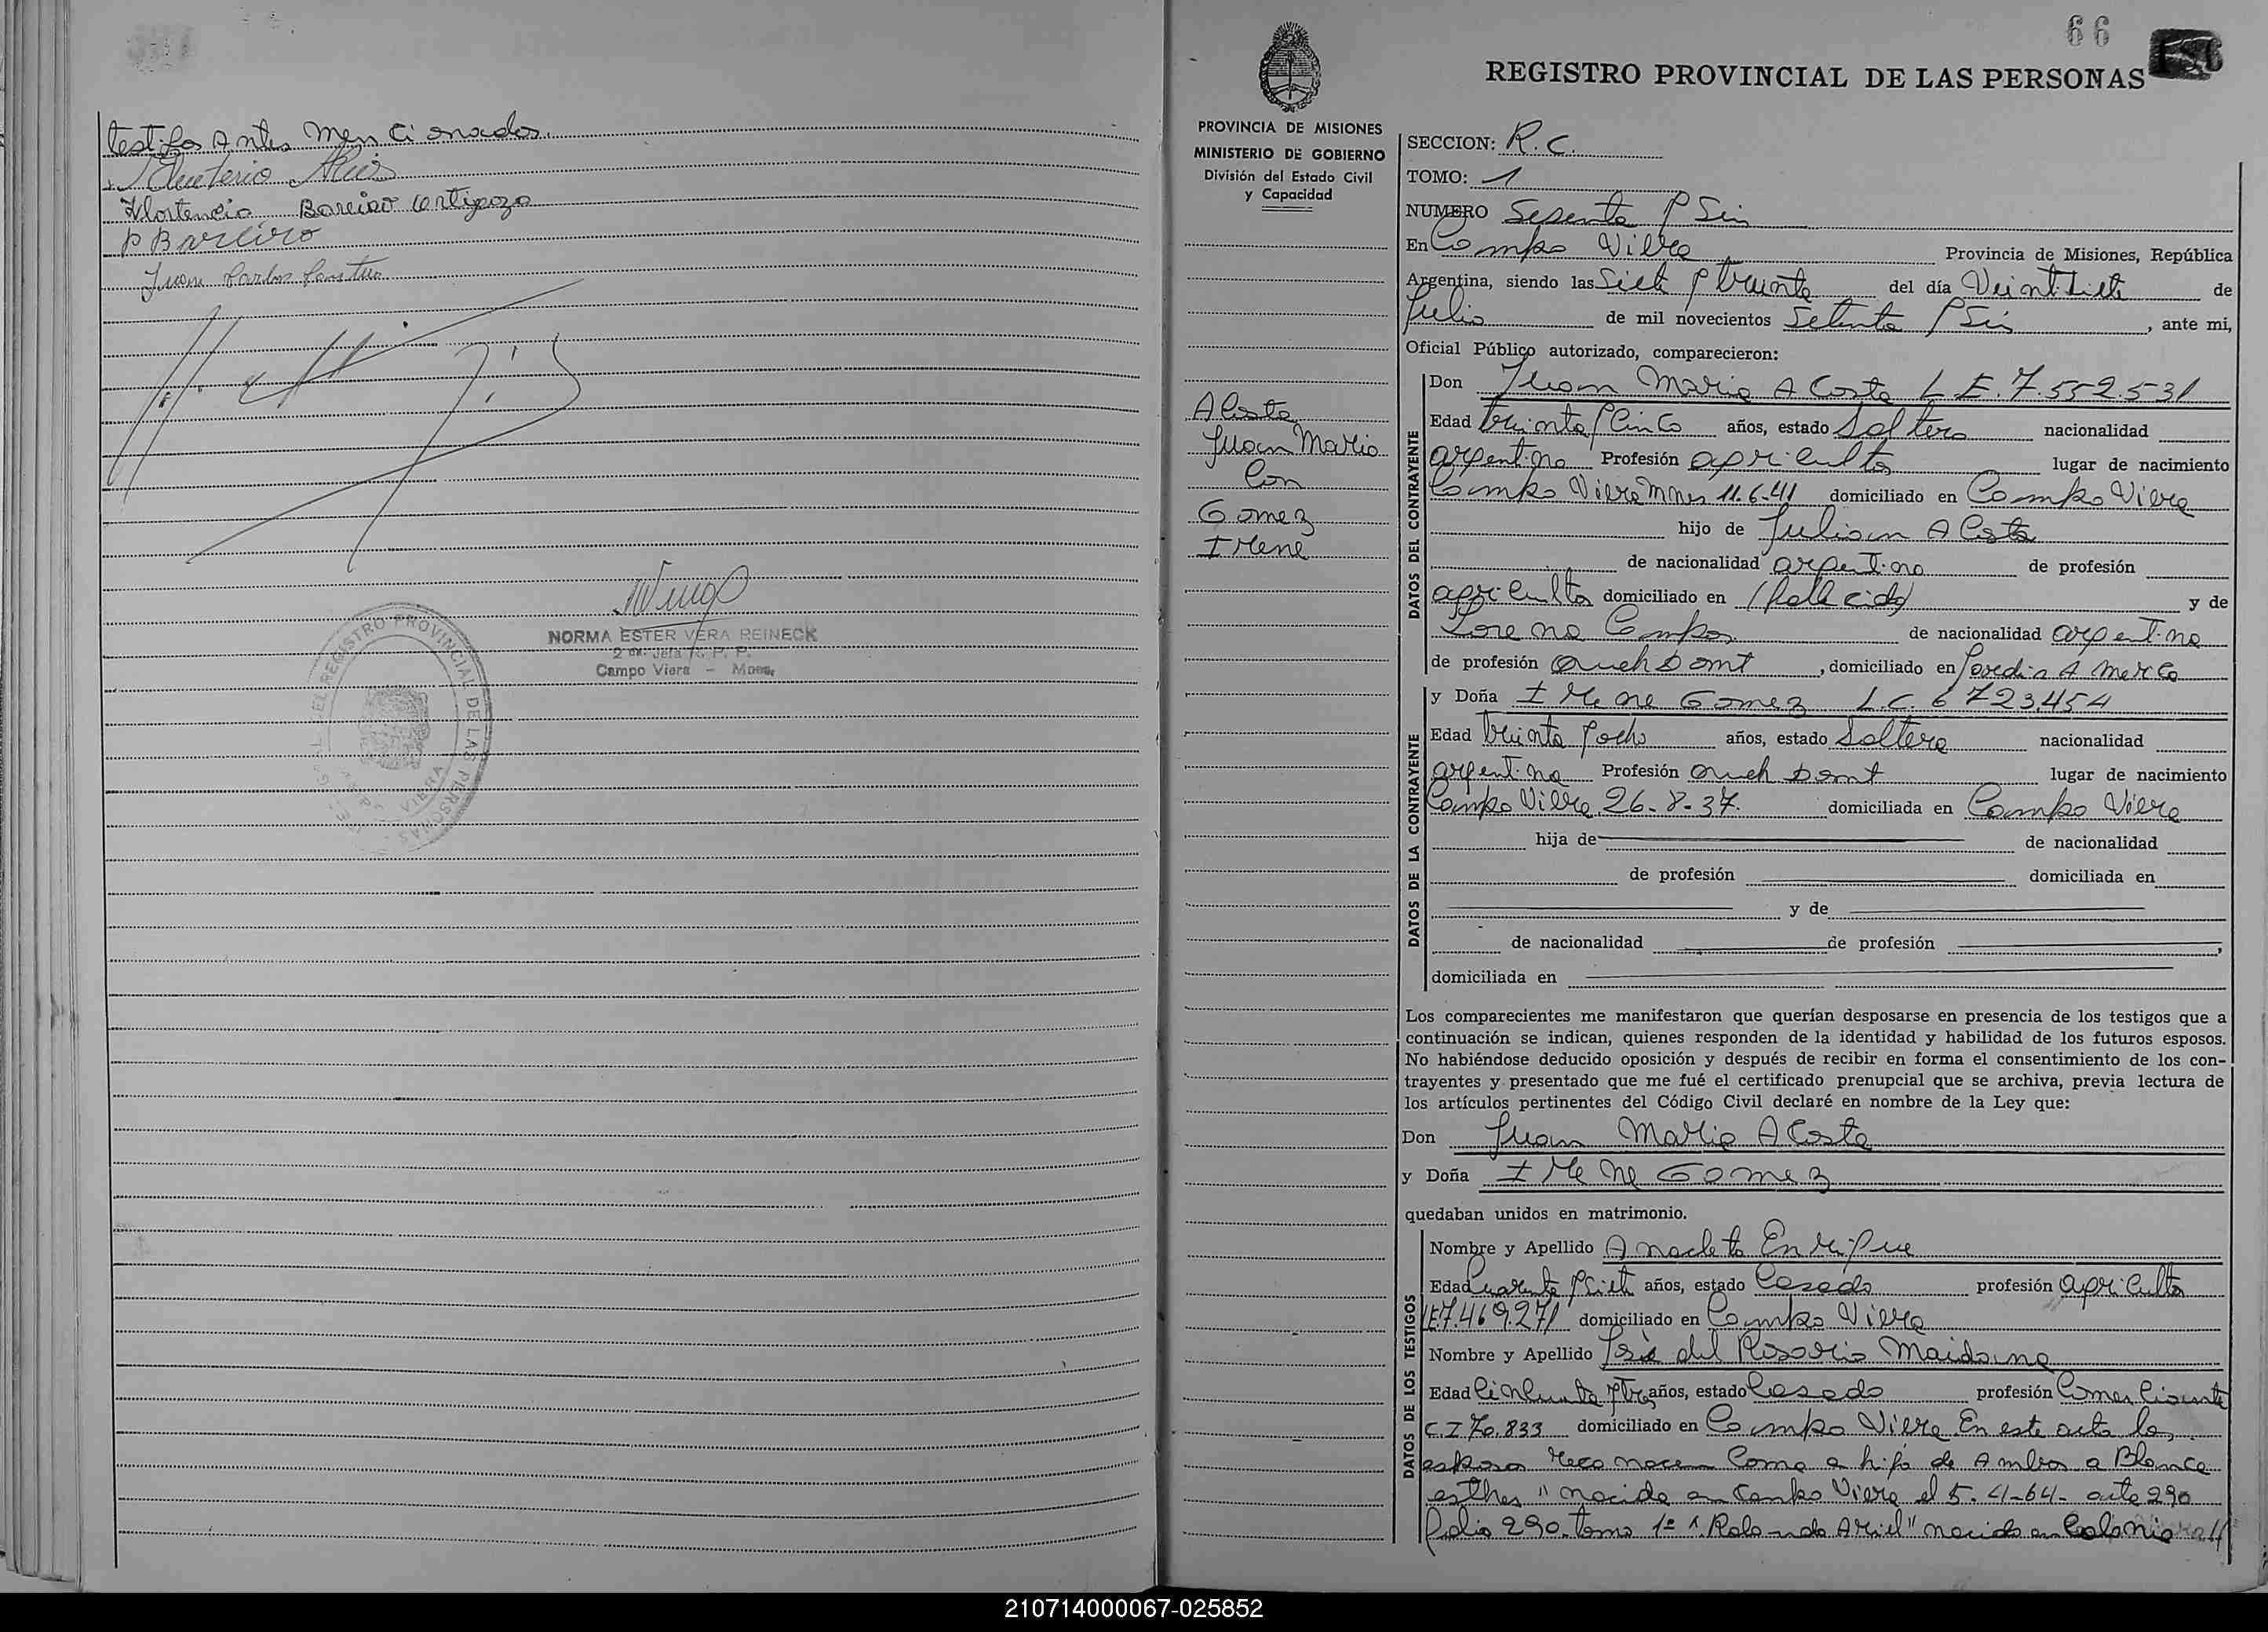 testigos Antes Mencionados.
Eleuterio
Hortencia Bareiro Ortigoza
P Bareiro
Juan Carlos
NORMA ESTER VERA REINECK
2da. Jefa R. P. P.
Campo Viera — Mnes.
DEL REGISTRO PROVINCIAL DE LAS PERSONAS
VIERA
66
REGISTRO PROVINCIAL DE LAS PERSONAS
PROVINCIA DE MISIONES
MINISTERIO DE GOBIERNO
División del Estado Civil
y Capacidad
Acosta
Juan Mario
Con
Gomez
Irene
SECCION: R.C.
TOMO: 1
NUMERO Sesenta y Seis
En Campo Viera Provincia de Misiones, República
Argentina, siendo las Siete y treinta del día Veintisiete de
Julio de mil novecientos Setenta y Seis, ante mi,
Oficial Público autorizado, comparecieron:
DATOS DEL CONTRAYENTE
Don Juan Mario Acosta L.E. 7.552.531
Edad treinta y Cinco años, estado Soltero nacionalidad
argentina Profesión agricultor lugar de nacimiento
Campo Viera Mnes 11.6.41 domiciliado en Campo Viera
hijo de Julian Acosta
de nacionalidad argentino de profesión
agricultor domiciliado en (fallecido) y de
Lorena Campos de nacionalidad argentina
de profesión queh Domt, domiciliado en America
DATOS DE LA CONTRAYENTE
y Doña Irene Gomez L.C. 6 723.454
Edad treinta y ocho años, estado Soltera nacionalidad
argentina Profesión queh Domt lugar de nacimiento
Campo Viera 26-8-37. domiciliada en Campo Viera
hija de de nacionalidad
de profesión domiciliada en
y de
de nacionalidad de profesión ,
domiciliada en
Los comparecientes me manifestaron que querían desposarse en presencia de los testigos que a
continuación se indican, quienes responden de la identidad y habilidad de los futuros esposos.
No habiéndose deducido oposición y después de recibir en forma el consentimiento de los con-
trayentes y presentado que me fué el certificado prenupcial que se archiva, previa lectura de
los artículos pertinentes del Código Civil declaré en nombre de la Ley que:
Don Juan Mario Acosta
y Doña Irene Gomez
quedaban unidos en matrimonio.
DATOS DE LOS TESTIGOS
Nombre y Apellido Anacleto Enrique
Edad Cuarenta y Siete años, estado Casado profesión agricultor
LE.7.469.271 domiciliado en Campo Viera
Nombre y Apellido José del Rosario Maidana
Edad Cincuenta y tres años, estado Casado profesión Comerciante
C.I 70.833 domiciliado en Campo Viera En este acto los
esposos reconocen Como a hijo de Ambos a Blanca
esther" nacida en Campo Viera el 5-4-64- acta 290
folio 290 tomo 1º "Rolando Ariel" nacido en Colonia
210714000067-025852